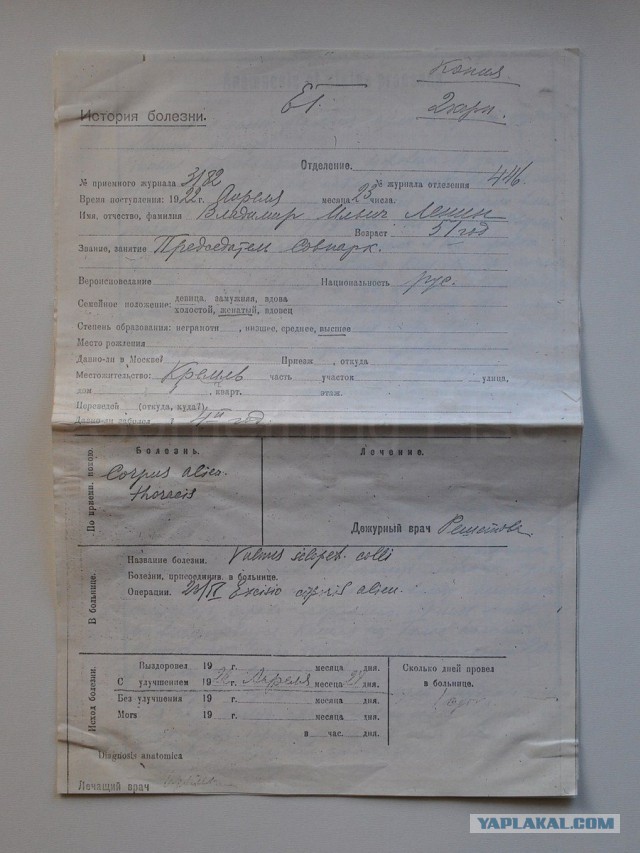 Копия
История болезни.
2 экз.
Отделение
№ приемного журнала 3/82 № журнала отделения 446
Время поступления: 1922 г. Апреля месяца 23 числа.
Имя, отчество, фамилия Владимир Ильич Ленин
Возраст 51 год
Звание, занятие Председатель Совнарк.
Вероисповедание Национальность рус.
Семейное положение: девица, замужняя, вдова
холостой, женатый, вдовец
Степень образования: неграмотн , низшее, среднее, высшее
Место рождения
Давно-ли в Москве? Приезж , откуда
Местожительство: Кремль часть участок улица,
дом , кварт. этаж.
Переведен (откуда, куда?)
Давно-ли заболел
По приемн. покою.
Болезнь. Лечение.
Corpus alien.
thoracis
Дежурный врач
В больнице.
Название болезни. Vulnus sclopet. colli
Болезни, присоединив. в больнице.
Операции. Excisio corporis alieni
Исход болезни.
Выздоровел 19 г. месяца дня.
С улучшением 1922 г. Апреля месяца 24 дня.
Без улучшения 19 г. месяца дня.
Могв 19 г. месяца дня.
в час. дня.
Сколько дней провел
в больнице.
Diagnosis anatomica
Лечащий врач
YAPLAKAL.COM